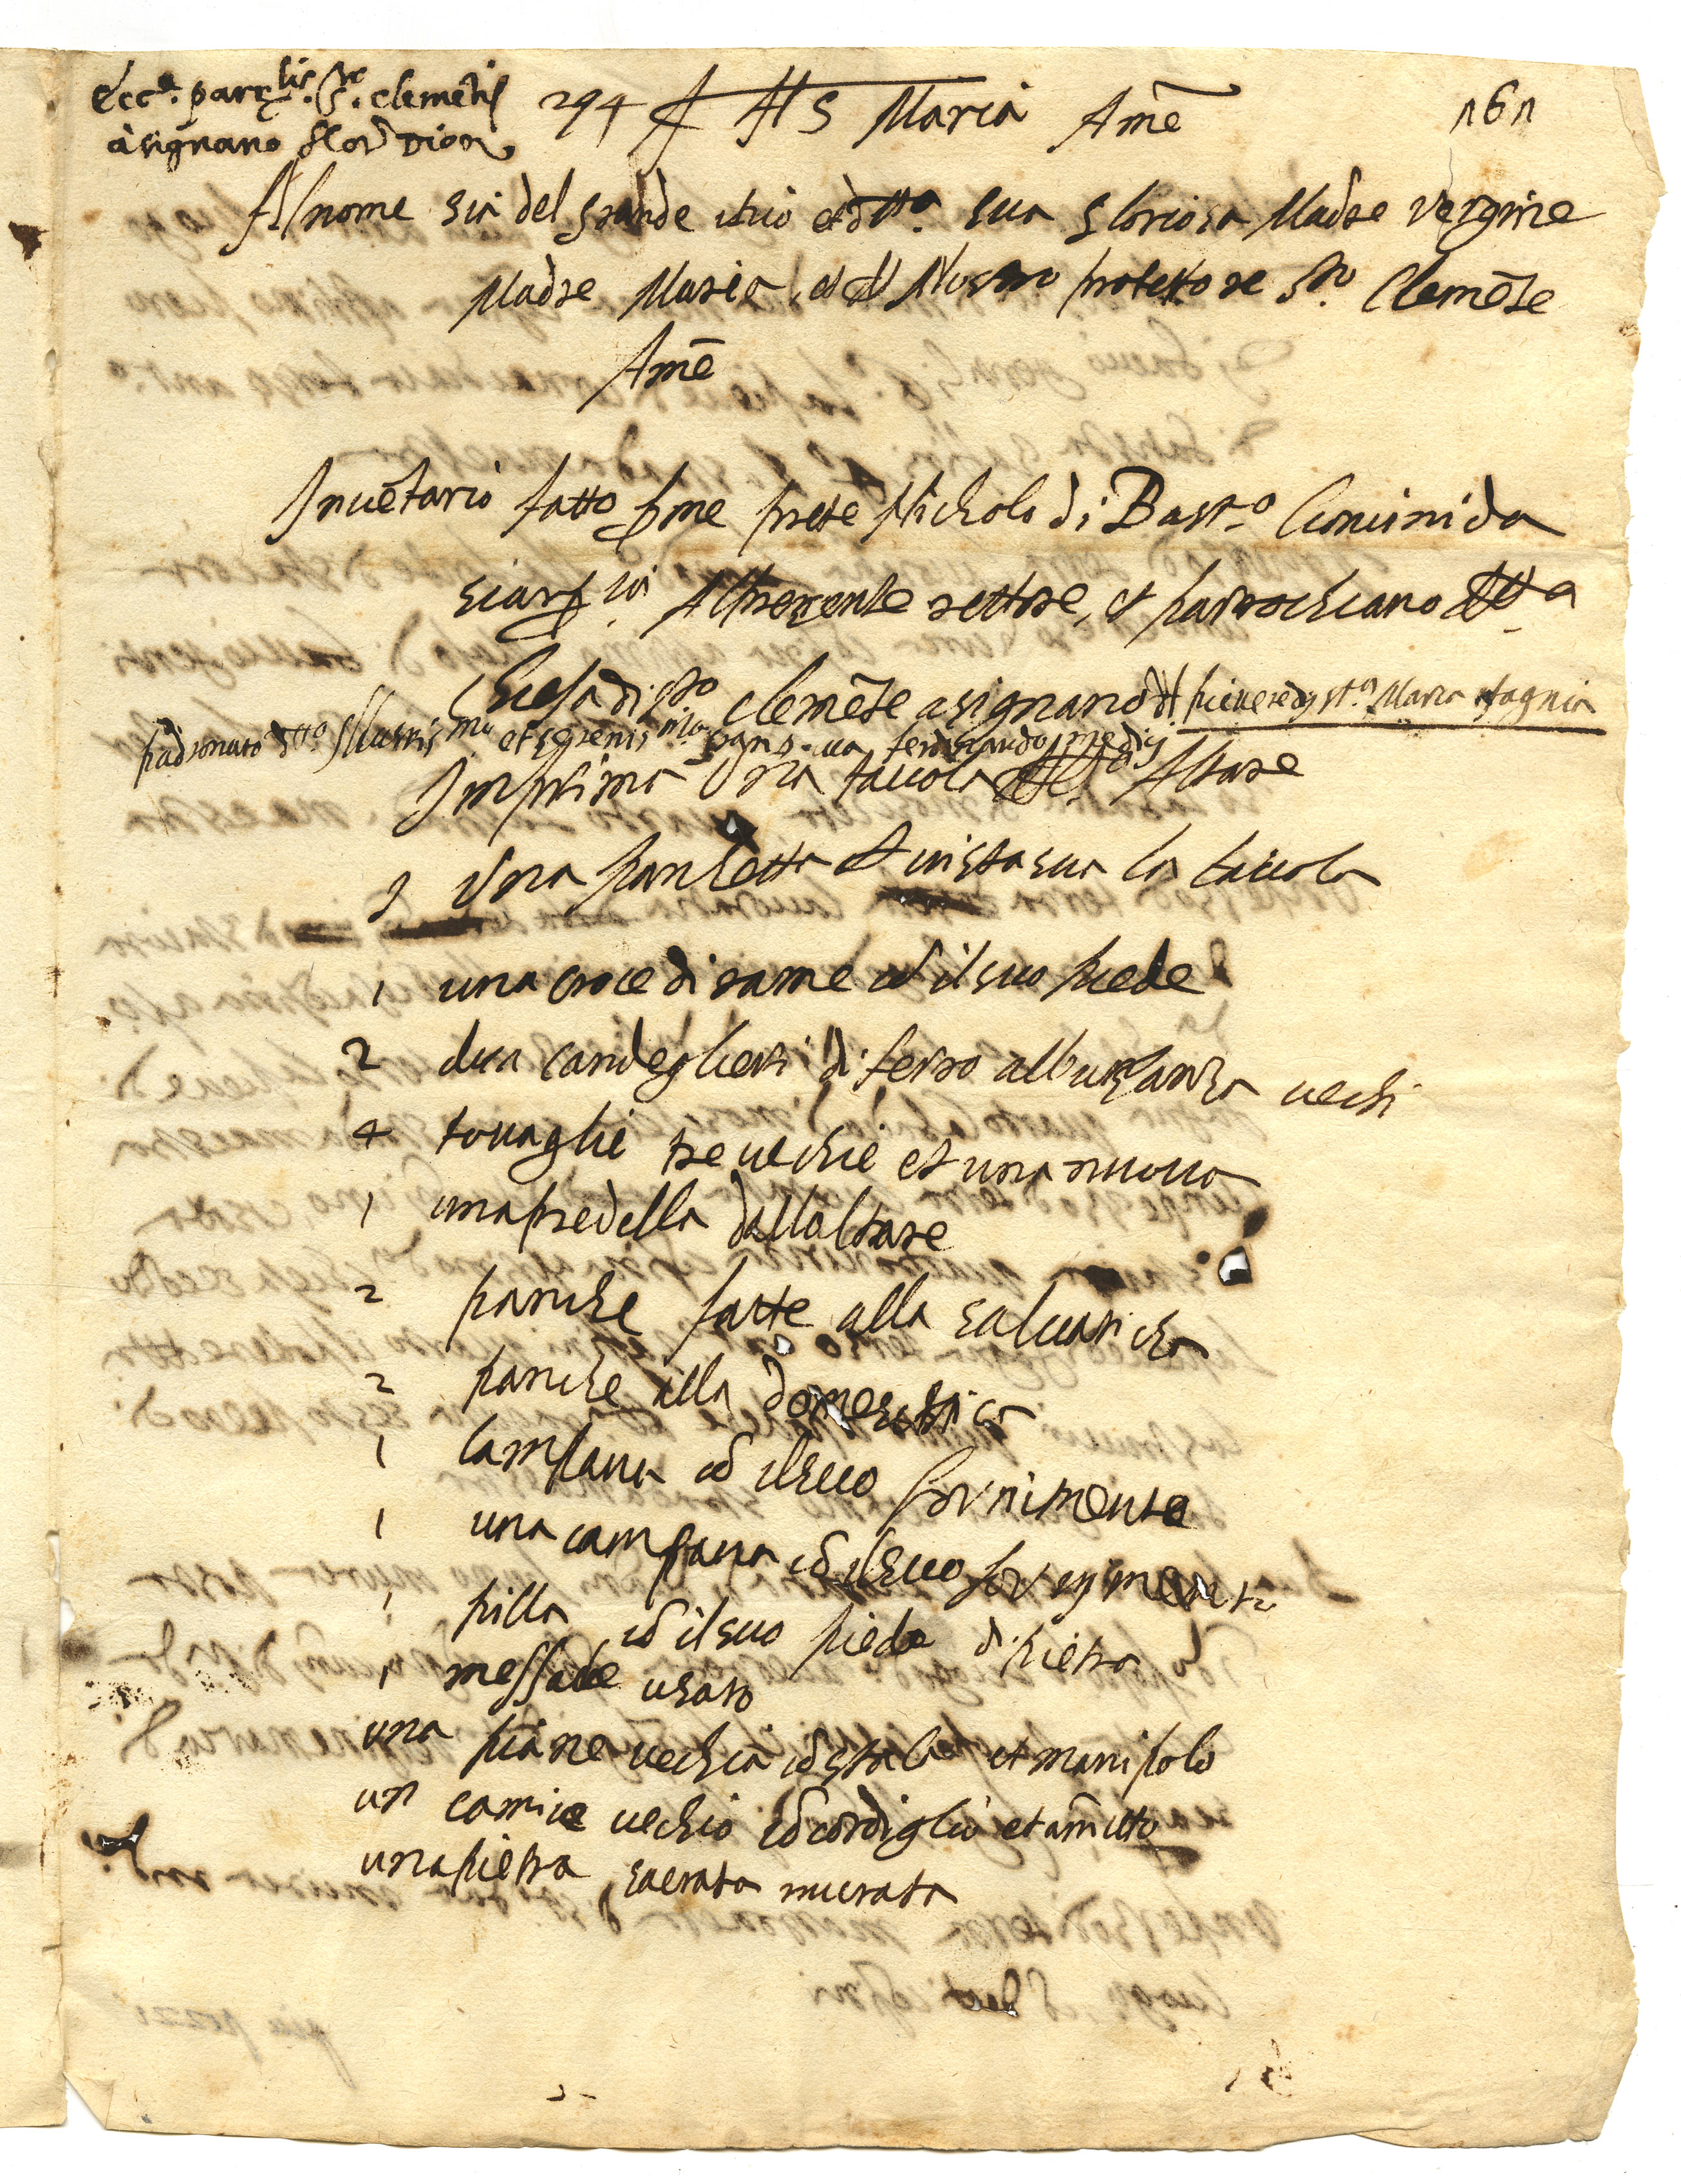 Ecc.a parr.lis S. Clemẽtis
à signano flor Dioc
294 Ihs Maria Amẽ
161
Al nome sia del grande idio et d tta. sua gloriosa Madre vergine
Madre Maria, et d Nostro protettore sto. Clemẽte
Amẽ
Inuẽtario fatto p me prete Nicholo di Bast.o da
Al presente rettore, et parrochiano
Chiesa di sto clemẽte a signano piuere di sta. Maria
padronato Illustris.mo et serenis.mo ferdinando medici
Imprima Una tauola Altare
1 Una panletta la tauola
1 una croce di rame cõ il suo piede
2 dua candeglieri di ferro all uechi
4 touaglie tre uechie et una nuoua
1 una predella dallaltare
2 panche fatte alla saluaticha
2 panche alla domestica
1 campana cõ il suo fornimento
1 una campana cõ il suo
1 pilla cõ il suo piede di pietra
1 messale usato
una pianeta uechia cõ stola et manipolo
un camice uechio cõ cordiglio et amitto
una pietra sacrata murata